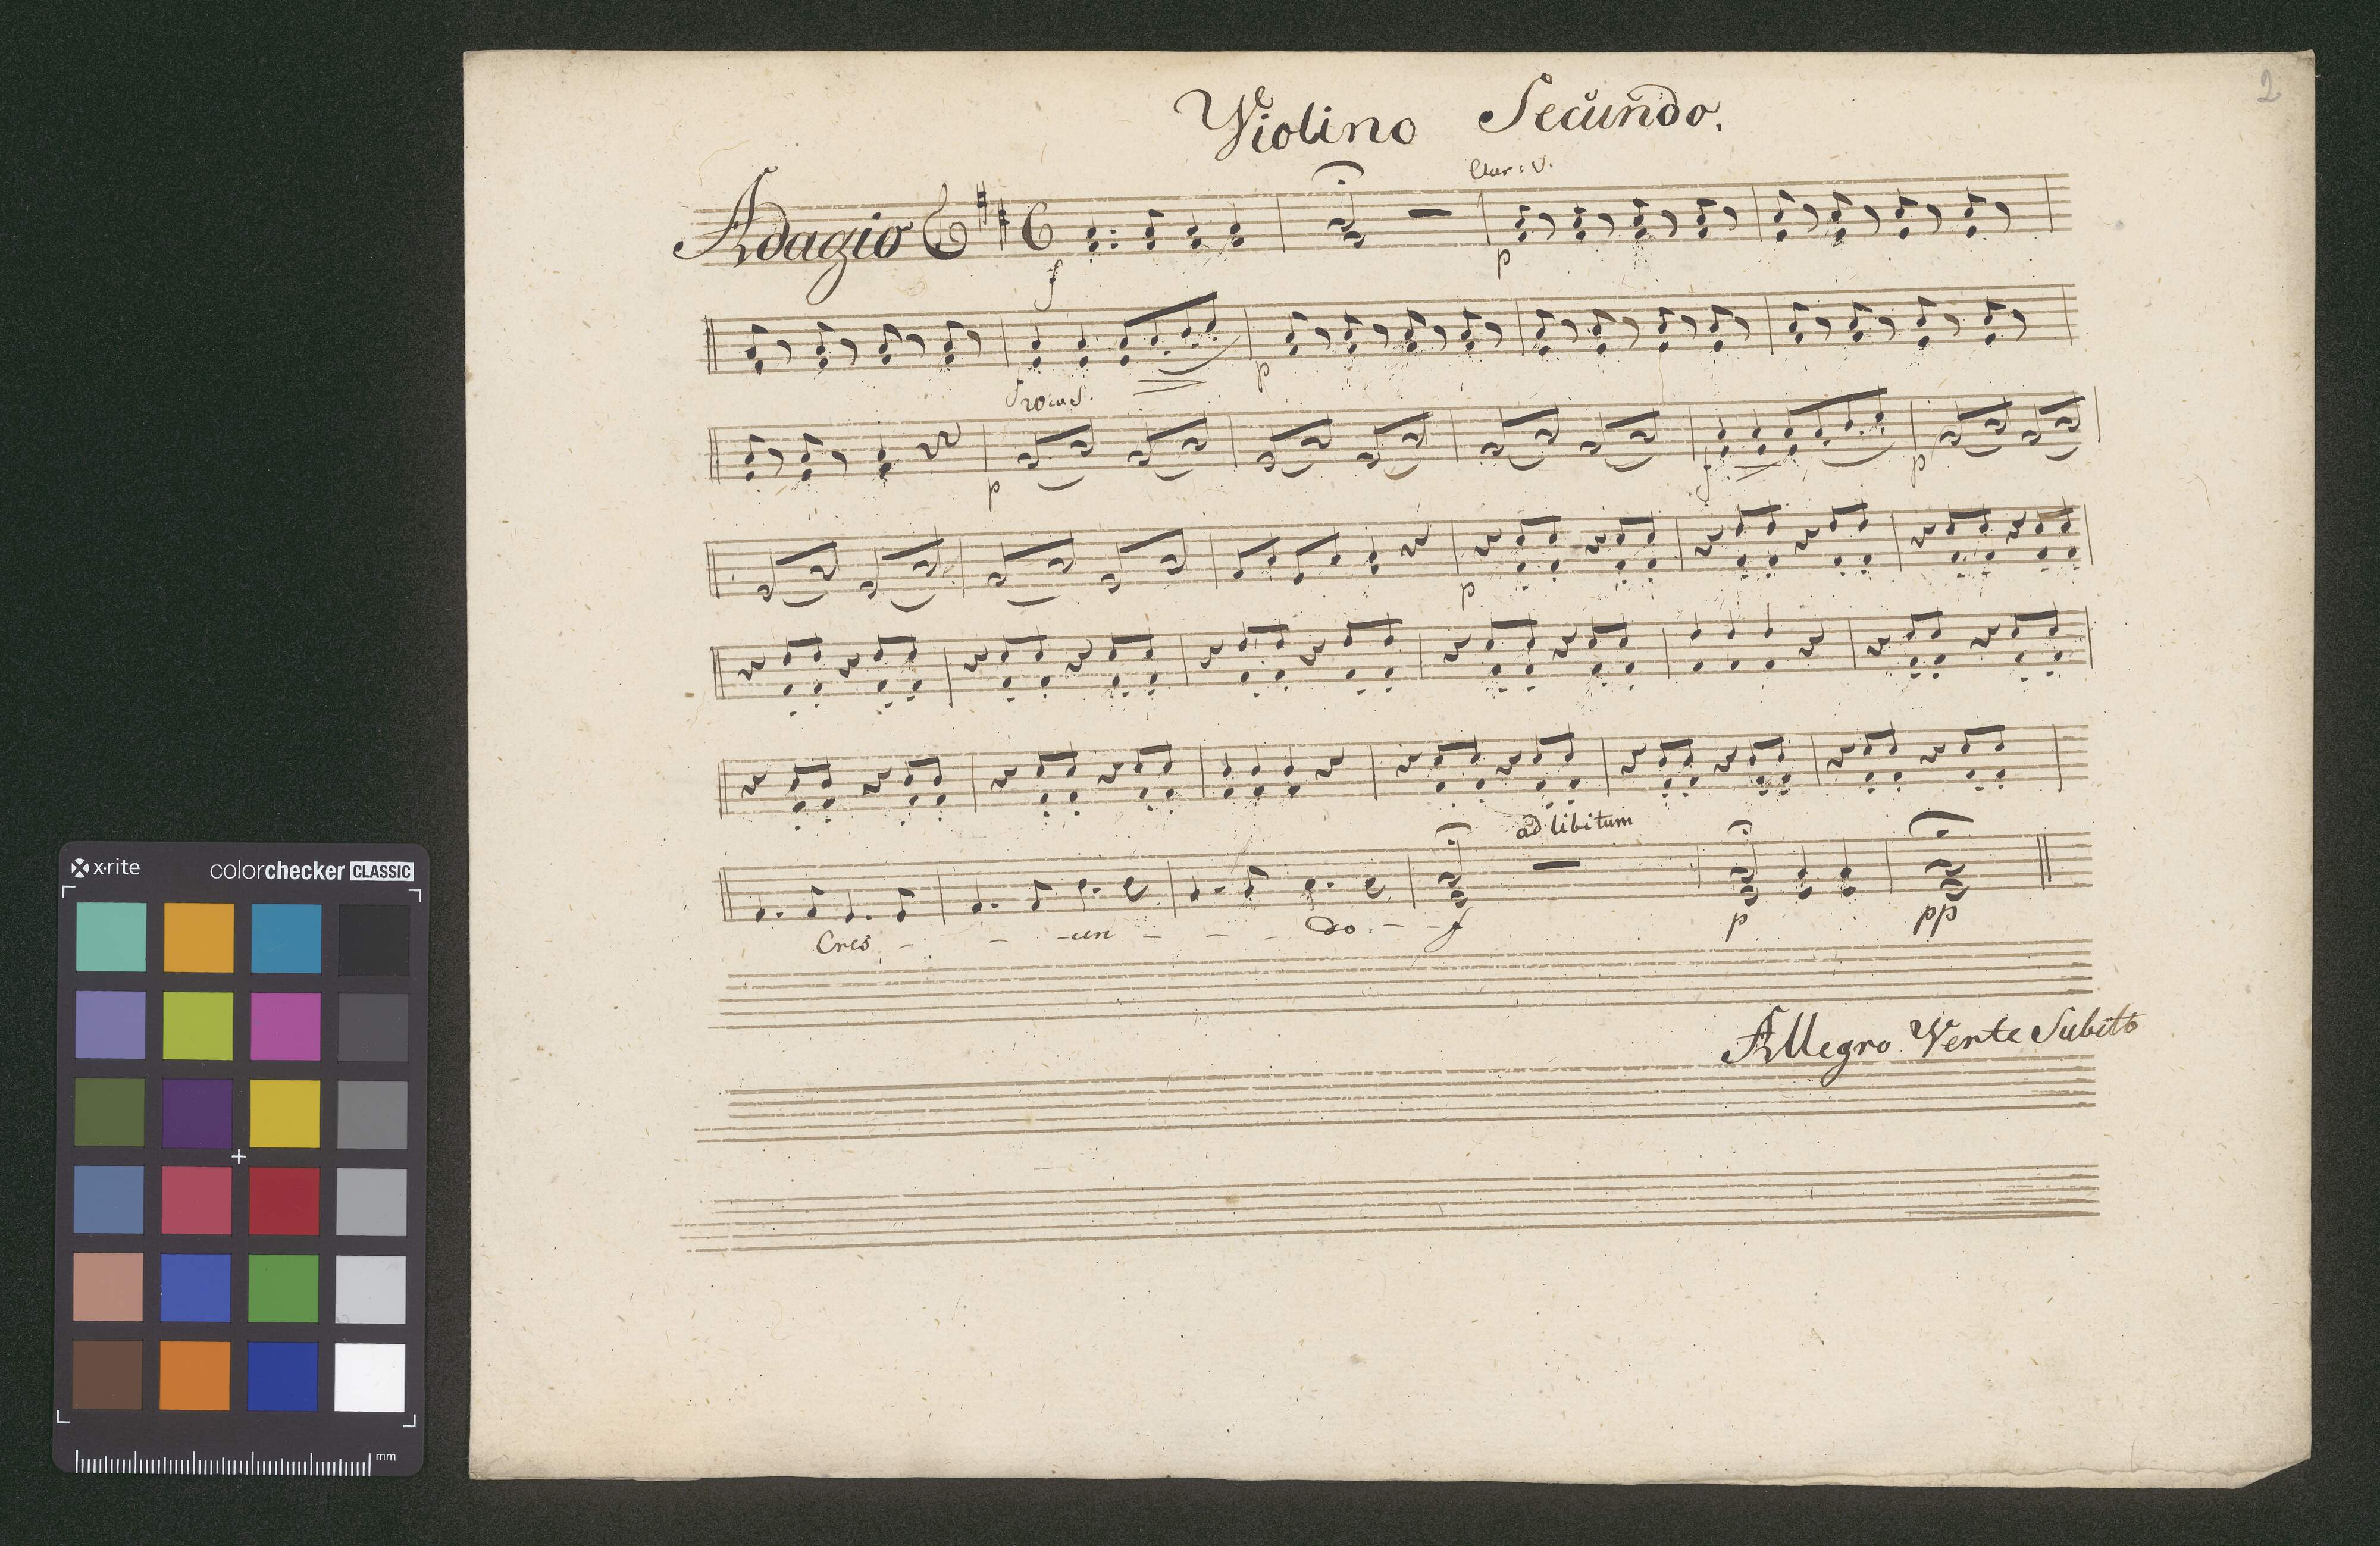 2
Violino Secundo.
Adagio
f
p
p
p
f
p
p
ad libitum
Cres - - - cen - - - do - - f
p
pp
Allegro Verte Subito
x·rite
colorchecker CLASSIC
mm